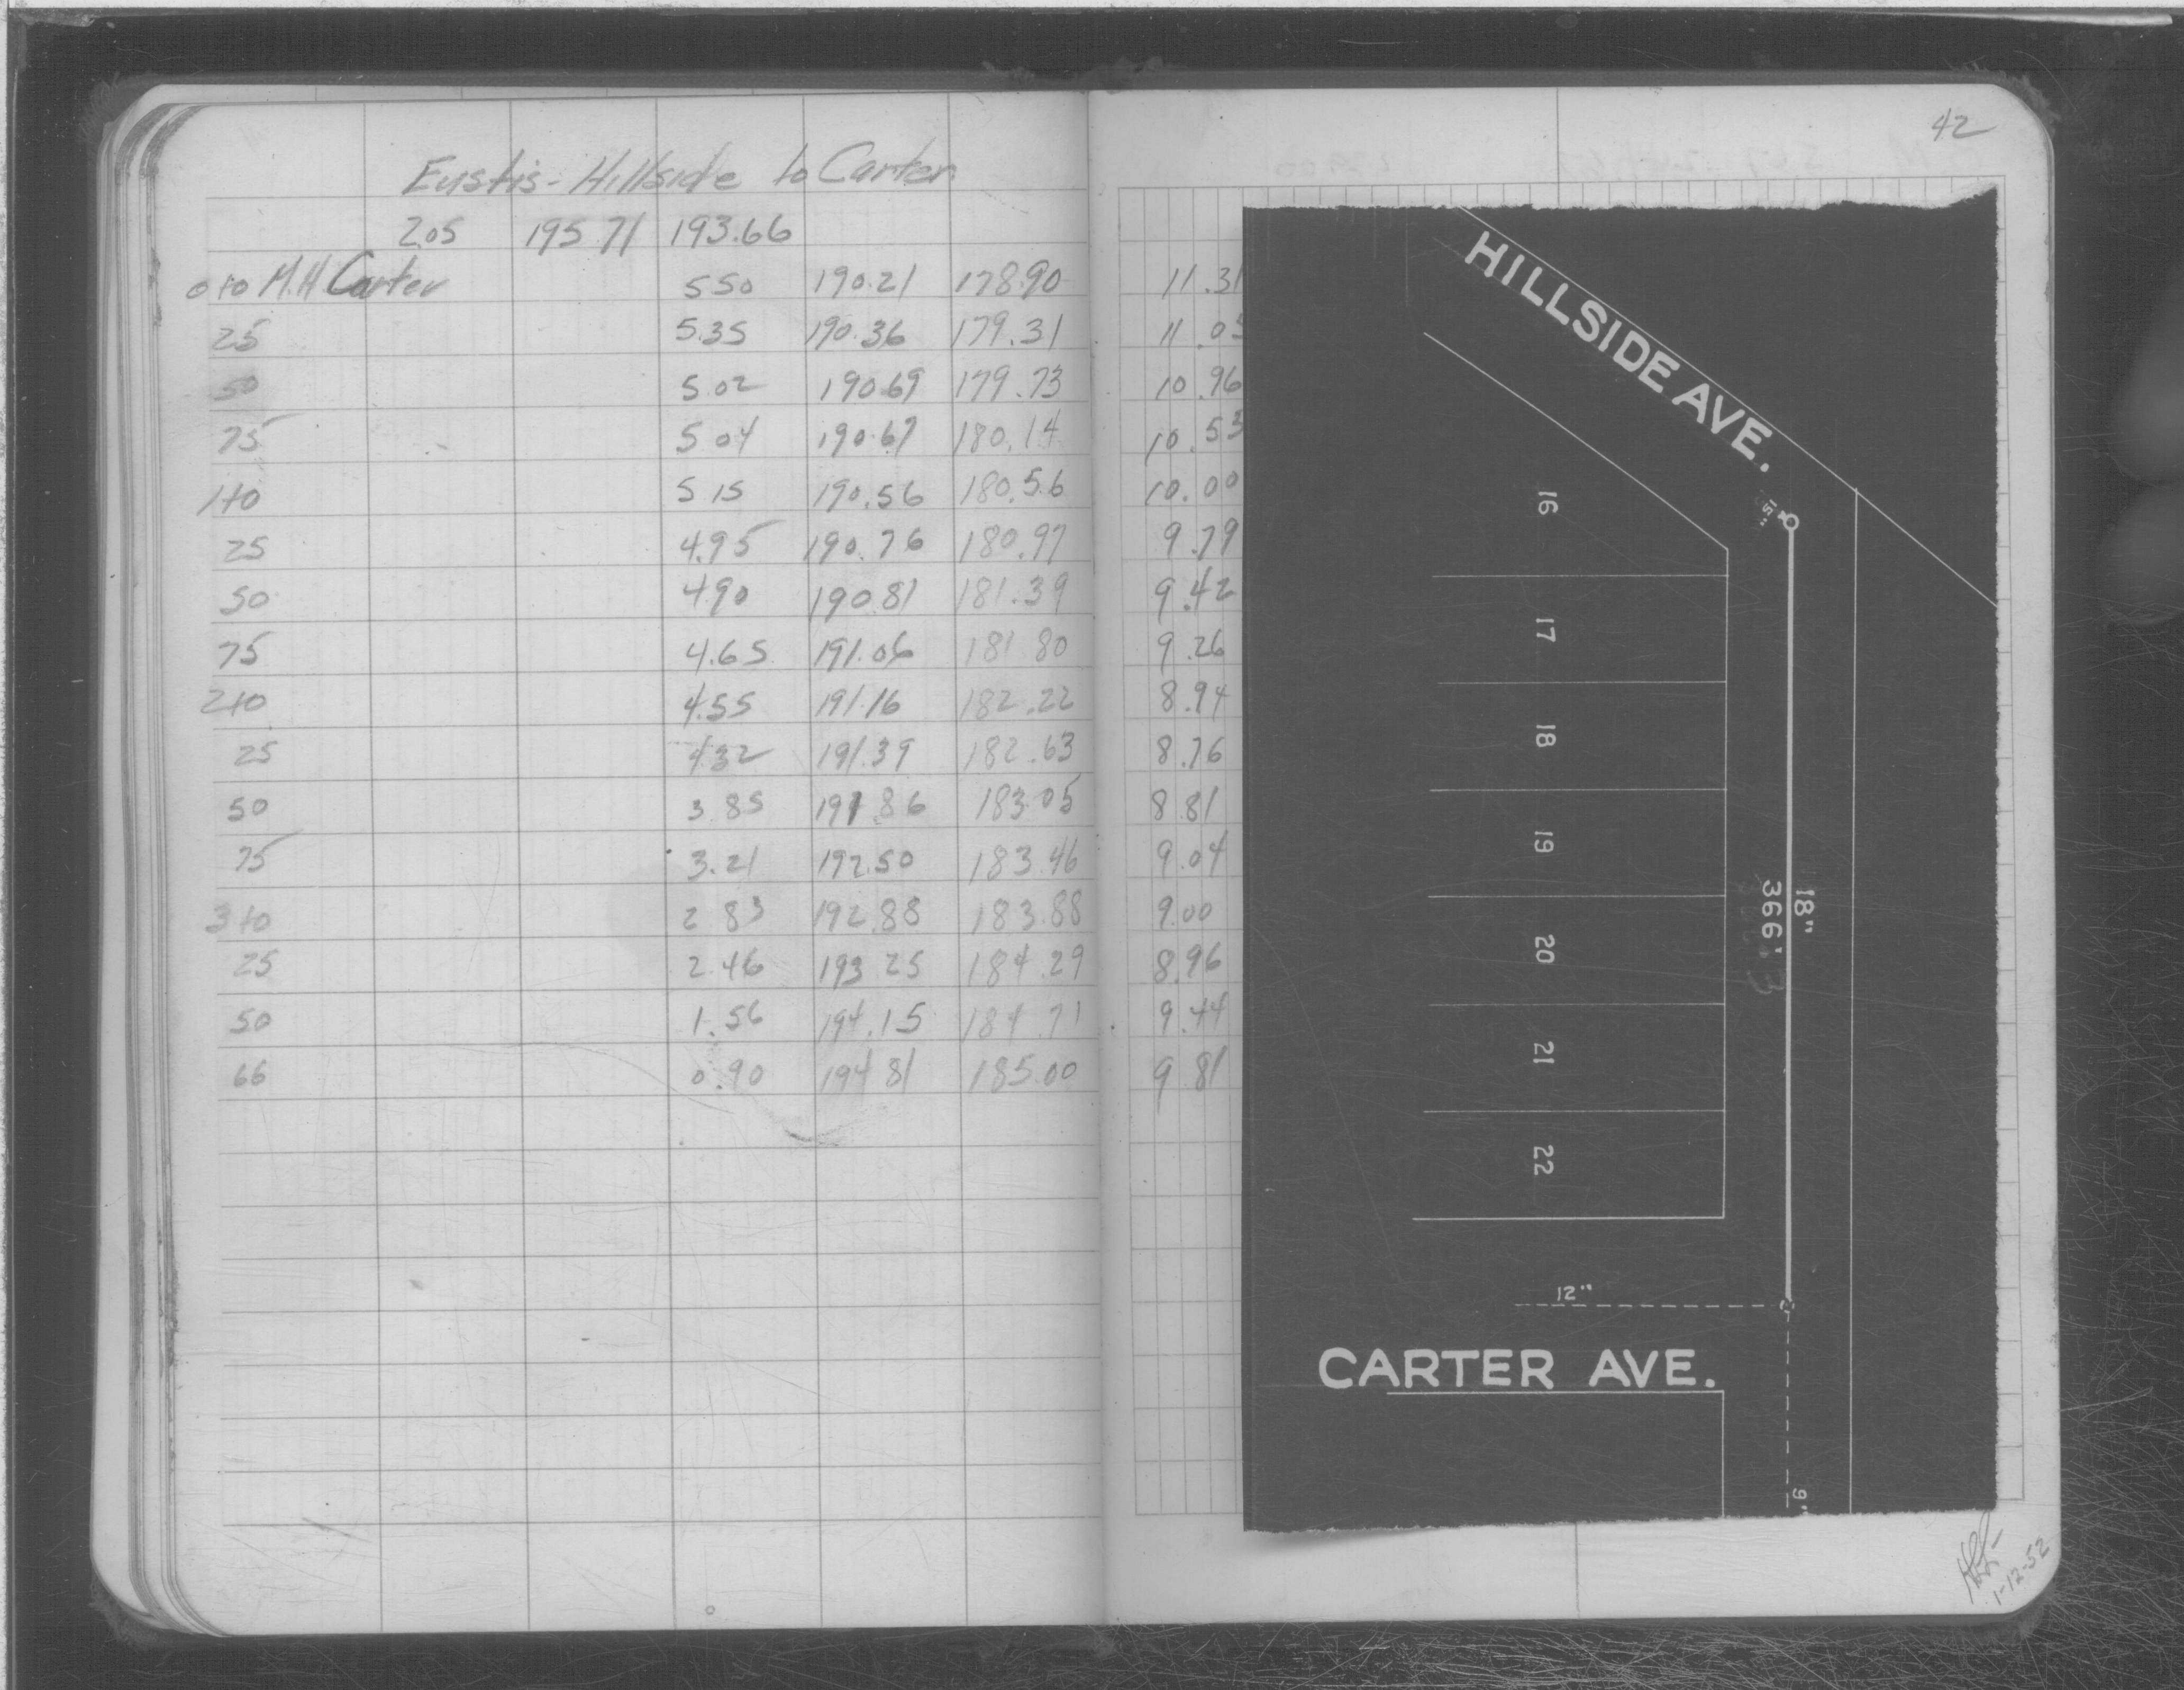 Eustis - Hillside to Carter
2.05 195.71 193.66
0+0 M.H Carter 5.50 190.21 178.90 11.31
25 5.35 190.36 179.31 11.05
50 5.02 190.69 179.73 10.96
75 5.04 190.67 180.14 10.53
1+0 5.15 190.56 180.56 10.00
25 4.95 190.76 180.97 9.79
50 4.90 190.81 181.39 9.42
75 4.65 191.06 181.80 9.26
2+0 4.55 191.16 182.22 8.94
25 4.32 191.39 182.63 8.76
50 3.85 191.86 183.05 8.81
75 3.21 192.50 183.46 9.04
3+0 2.83 192.88 183.88 9.00
25 2.46 193.25 184.29 8.96
50 1.56 194.15 184.71 9.44
66 0.90 194.81 185.00 9.81
42
HILLSIDE AVE.
15"
16
17
18
19
20
21
22
18"
366'
12"
CARTER AVE.
9"
1-12-52